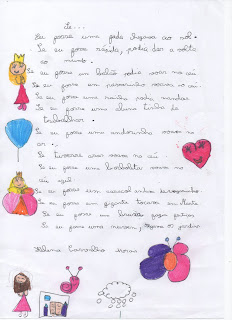 Se...
Se eu fosse uma fada chegava ao sol.
Se eu fosse rápida, podia dar a volta
ao mundo.
Se eu fosse um balão podia voar no céu
Se eu fosse um passarinho voava no céu.
Se eu fosse uma rainha podia mandar.
Se eu fosse uma aluna tinha de
trabalhar.
Se eu fosse uma andorinha voava no
ar.
Se tivesse asas voava no céu.
Se eu fosse uma borboleta voava no
céu azul.
Se eu fosse um caracol andava devagarinho.
Se eu fosse um gigante tocava
Se eu fosse um bruxo fazia
Se eu fosse uma nuvem, regava os jardins
Carvalho